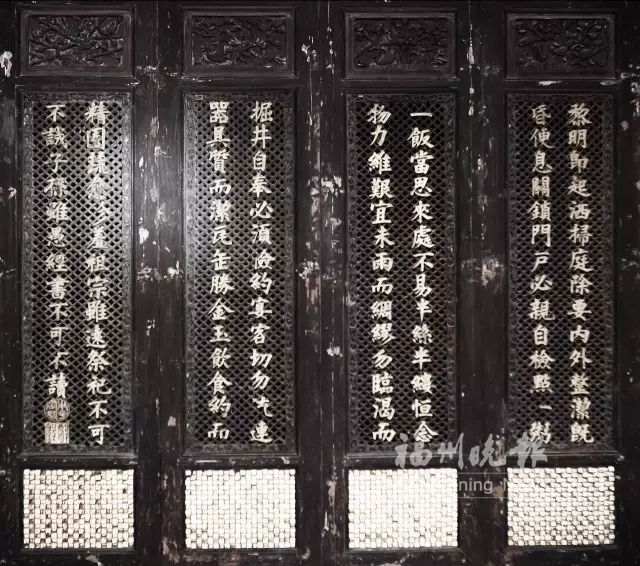 黎明即起洒掃庭除要內外整潔既
昏便息關鎖門戶必親自檢點一粥
一飯當思來處不易半絲半縷恒念
物力維艱宜未雨而綢繆勿臨渴而
掘井自奉必須儉約宴客切勿流連
器具質而潔瓦缶勝金玉飲食約而
精園蔬愈珍羞祖宗雖遠祭祀不可
不誠子孫雖愚經書不可不讀
福州晚報